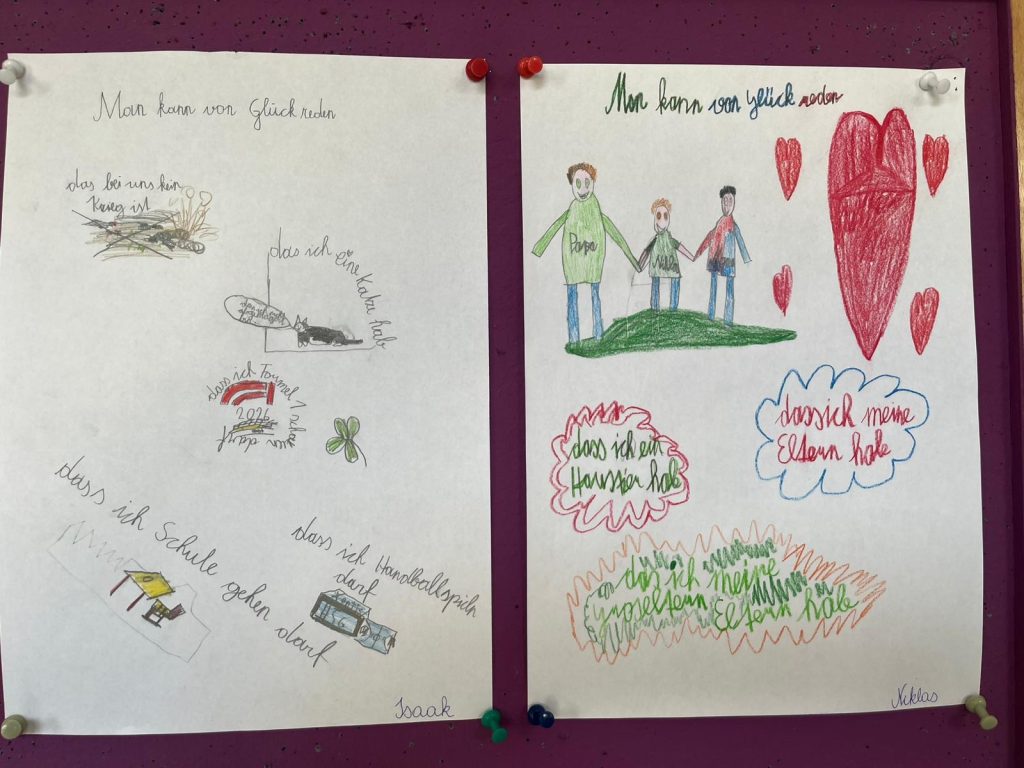 Man kann von Glück reden
das bei uns kein
Krieg ist
das ich eine Katze hab
dass ich Formel 1 schauen darf
2026
dass ich Schule gehen darf
dass ich Handballspieln
darf
Isaak
Man kann von Glück reden
Papa
dass ich ein
Haustier hab
dass ich meine
Eltern habe
das ich meine
Eltern habe
Niklas